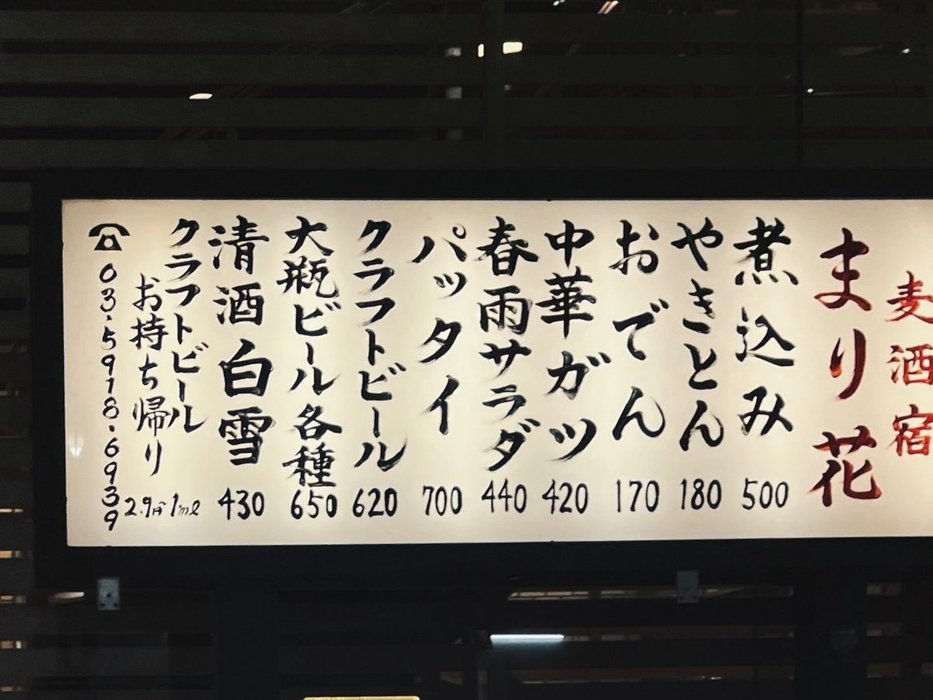 麦酒宿
まり花
煮込み 500
やきとん 180
おでん 170
中華ガツ 420
春雨サラダ 440
パッタイ 700
クラフトビール 620
大瓶ビール各種 650
清酒白雪 430
クラフトビール
お持ち帰り
2.9円 1ml
☎03-5918-6939